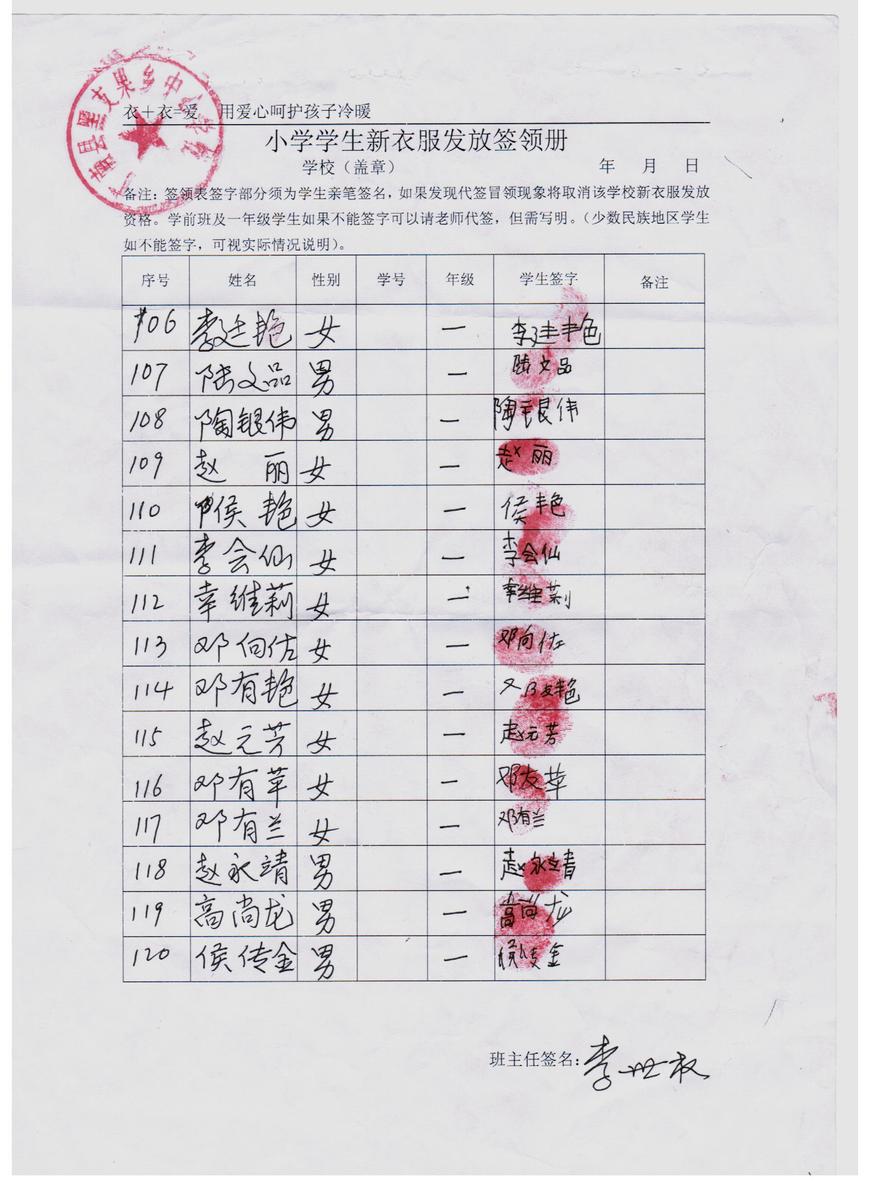 衣＋衣=爱 用爱心呵护孩子冷暖
小学学生新衣服发放签领册
学校（盖章） 年 月 日
备注：签领表签字部分须为学生亲笔签名，如果发现代签冒领现象将取消该学校新衣服发放
资格。学前班及一年级学生如果不能签字可以请老师代签，但需写明。（少数民族地区学生
如不能签字，可视实际情况说明）。
序号 姓名 性别 学号 年级 学生签字 备注
106 李廷艳 女 一 李廷艳
107 陆文品 男 一 陆文品
108 陶银伟 男 一 陶银伟
109 赵丽 女 一 赵丽
110 侯艳 女 一 侯艳
111 李会仙 女 一 李会仙
112 幸维莉 女 一 幸维莉
113 邓向佐 女 一 邓向佐
114 邓有艳 女 一 邓友艳
115 赵元芳 女 一 赵元芳
116 邓有苹 女 一 邓友苹
117 邓有兰 女 一 邓有兰
118 赵永靖 男 一 赵永靖
119 高尚龙 男 一 高尚龙
120 侯传金 男 一 侯传金
班主任签名：李世权